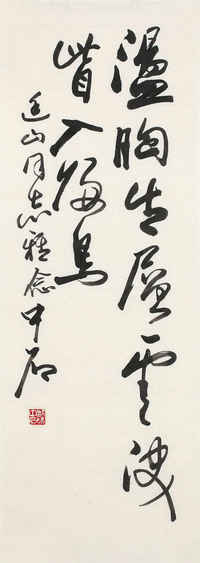 盪胸生層雲決
眥入歸鳥
山同志雅念中石